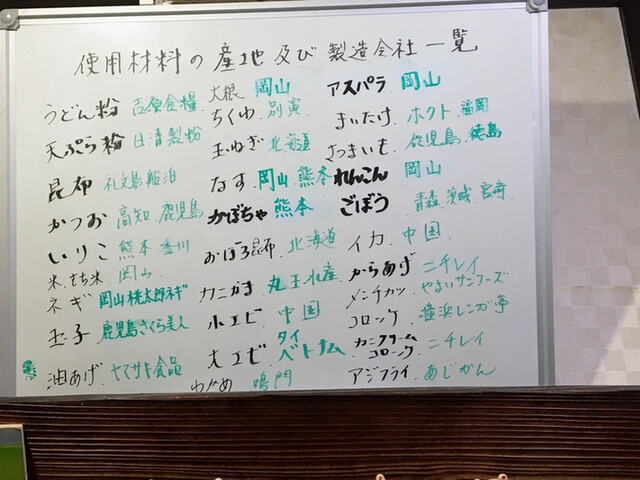 使用材料の産地及び製造会社一覧
うどん粉 吉原食糧
天ぷら粉 日清製粉
昆布 礼文島船泊
かつお 高知.鹿児島
いりこ 熊本.香川
米.もち米 岡山
ネギ 岡山桃太郎ネギ
玉子 鹿児島さくら美人
油あげ.ヤマサキ食品
大根 岡山
ちくわ.別寅
玉ねぎ.北海道
なす.岡山熊本
かぼちゃ 熊本
おぼろ昆布.北海道
カニかま.丸玉水産
小エビ.中国
大エビ.タイ ベトナム
わかめ 鳴門
アスパラ 岡山
まいたけ.ホクト.福岡
さつまいも.鹿児島.徳島
れんこん 岡山
ごぼう.青森.茨城.宮崎
イカ.中国.
からあげ.ニチレイ
メンチカツ.やよいサンフーズ
コロッケ.横浜レンガ亭
カニクリームコロッケ.ニチレイ
アジフライ.あじかん